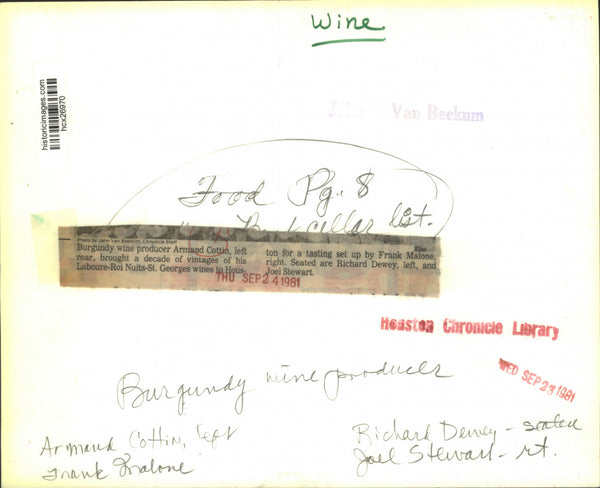 Wine
historicimages.com
hcx26970
John Van Beekum
Food Pg. 8
cellar list.
Photo by John Van Beekum, Chronicle Staff
Burgundy wine producer Armand Cottin, left
rear, brought a decade of vintages of his
Laboure-Roi Nuits-St. Georges wines to Hous-
ton for a tasting set up by Frank Malone,
right. Seated are Richard Dewey, left, and
Joel Stewart.
THU SEP 24 1981
Houston Chronicle Library
WED SEP 23 1981
Burgundy wine producer
Armand Cottin, left
Frank Malone
Richard Dewey - seated
Joel Stewart - rt.